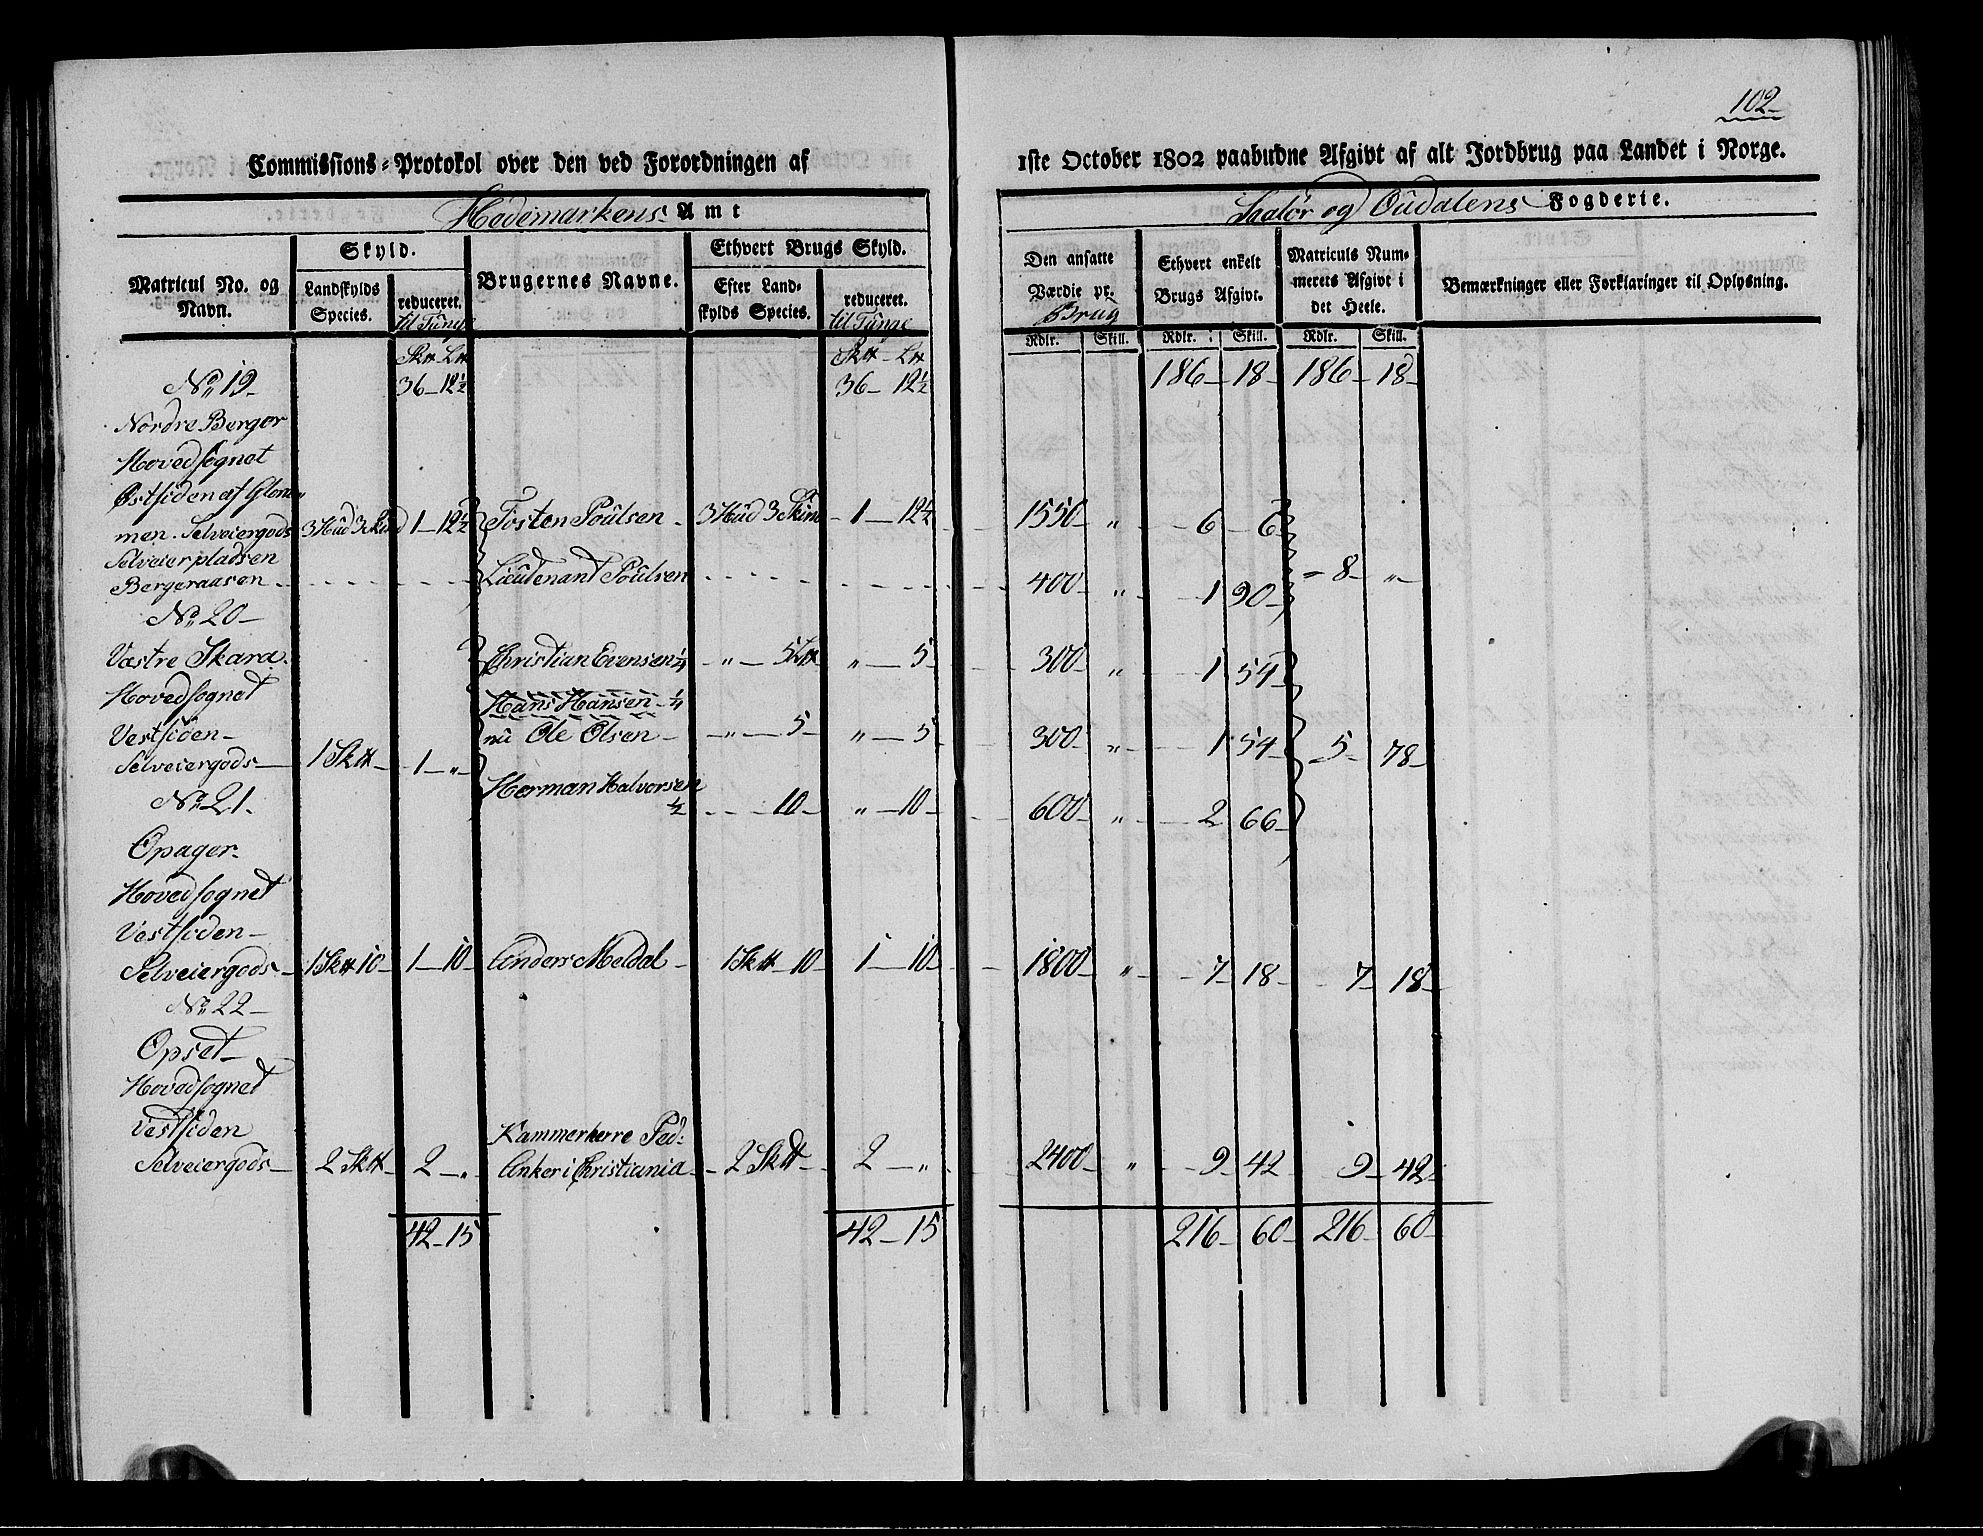 102
Commissions-Protokol over den ved Forordningen af 1ste October 1802 paabudne Afgivt af alt Jordbrug paa Landet i Norge.
Hedemarkens Amt Soløer og Oudalens Fogderie.
Matricul No. og Navn. Skyld. Brugernes Navne. Ethvert Brugs Skyld. Den ansatte Værdie pr. Brug Ethvert enkelt Brugs Afgivt. Matriculs Nummerets Afgivt i det Heele. Bemærkninger eller Forklaringer til Oplysning.
Landskylds Species. reduceret. til Tunge Efter Landskylds Species. reduceret. til Tunge
Rdlr. Skill. Rdlr. Skill. Rdlr. Skill.
Sk℔ - L℔ Sk℔ - L℔
No. 19 36 - 12½ 36 - 12½ 186 - 18 - 186 - 18 -
Nordre Berger
Hovedsognet
Østsiden af Glom-
men. Selveiergods 3 Hud 3 Skind 1 - 12½ Tosten Poulsen - 3 Hud 3 Skind - 1 - 12½ 1550 - " - 6 - 6
Selveierpladsen
Bergeraasen Lieutenant Poulsen 400 - " - 1 90 - 8 - " -
No. 20 -
Vestre Skara. Christian Evensen ¼ - " - 5 L℔ " - 5 - 300 - " - 1 54 -
Hovedsognet Hans Hansen - ¼
Vestsiden - nu Ole Olsen - - " - 5 - " - 5 - 300 - " - 1 54 - 5 - 78 -
Selveiergods - 1 Sk℔ - 1 - " -
No. 21. Herman Halvorsen ½ 10 - " - 10 - 600 - " - 2 66 -
Opager.
Hovedsognet
Vestsiden -
Selveiergods - 1 Sk℔ 10 - 1 - 10 - Anders Meldal - 1 Sk℔ - 10 - 1 - 10 - 1800 - " - 7 - 18 - 7 - 18 -
No. 22 -
Opset -
Hovedsognet
Vestsiden Kammerherre Ped:
Selveiergods - 2 Sk℔ - 2 - " - Anker i Christiania - 2 Sk℔ - 2 - " 2400 - " - 9 - 42 9 - 42 -
42 - 15 42 - 15 216 - 60 - 216 - 60 -